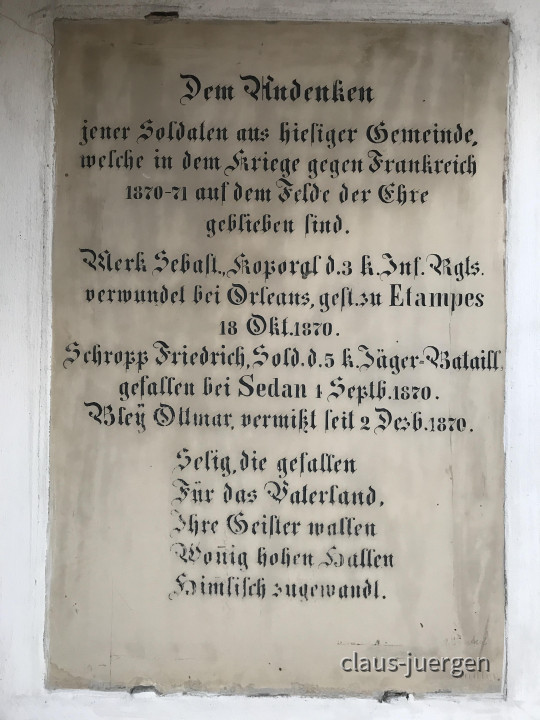 Dem Andenken
jener Soldaten aus hiesiger Gemeinde,
welche in dem Kriege gegen Frankreich
1870-71 auf dem Felde der Ehre
geblieben sind.
Merk Sebast., Koporal d. 3 k. Inf. Rgts.
verwundet bei Orleans, gest. zu Etampes
18 Okt. 1870.
Schropp Friedrich, Sold. d. 5 k. Jäger-Bataill.
gefallen bei Sedan 1 Septb. 1870.
Bleÿ Ottmar, vermißt seit 2 Dezb. 1870.
Selig, die gefallen
Für das Vaterland,
Ihre Geister wallen
Won̄ig hohen Hallen
Him̄lisch zugewandt.
claus-juergen